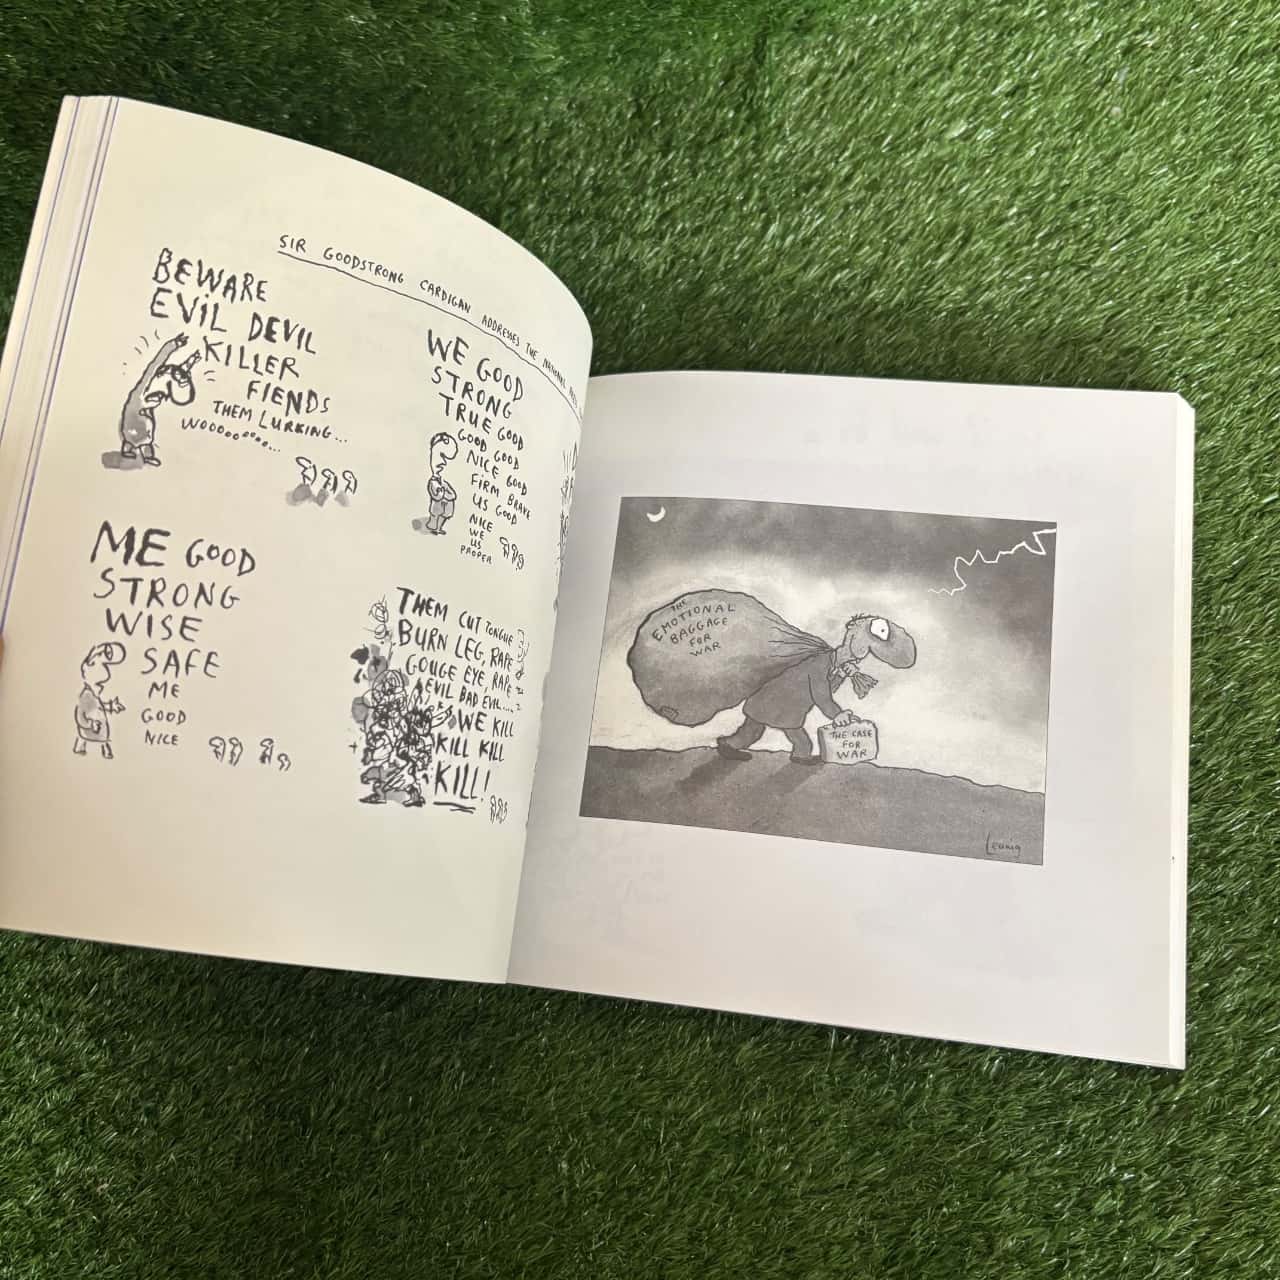 SIR GOODSTRONG CARDIGAN ADDRESSES THE NATIONAL PRESS
BEWARE
EVIL DEVIL
KILLER
FIENDS
THEM LURKING...
WOOOOOOOOO...
WE GOOD
STRONG
TRUE GOOD
GOOD GOOD
NICE GOOD
FIRM BRAVE
US GOOD
NICE
WE
US
PROPER
ME GOOD
STRONG
WISE
SAFE
ME
GOOD
NICE
THEM CUT TONGUE
BURN LEG, RAPE
GOUGE EYE, RAPE
EVIL BAD EVIL....
WE KILL
KILL KILL
KILL!
THE
EMOTIONAL
BAGGAGE
FOR
WAR
THE CASE
FOR
WAR
Leunig